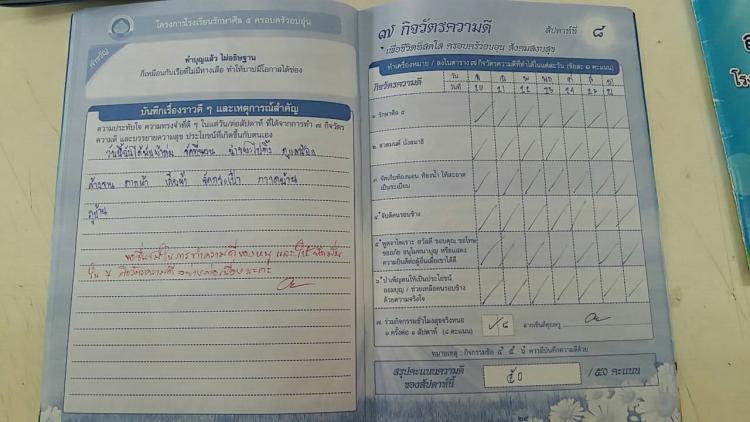 โครงการโรงเรียนรักษาศีล ๕ ครอบครัวอบอุ่น
คำขวัญ
ทำบุญแล้ว ไม่อธิษฐาน
ก็เหมือนกับเรือที่ไม่มีหางเสือ ทำให้บาปมีโอกาสได้ช่อง
บันทึกเรื่องราวดี ๆ และเหตุการณ์สำคัญ
ความประทับใจ ความทรงจำที่ดี ๆ ในแต่ละวัน/ต่อสัปดาห์ ที่ได้จากการทำ ๗ กิจวัตร
ความดี และบรรยายความสุข ประโยชน์ที่เกิดขึ้นกับตนเอง
ล้างจาน ตากผ้า เก็บผ้า จัดกระเป๋า กวาดบ้าน
ถูบ้าน
ขอชื่นชมในการทำความดีของหนู และให้
ใน ๗ กิจวัตรความดี อย่างต่อเนื่องนะคะ
๗ กิจวัตรความดี
สัปดาห์ที่ ๘
เพื่อชีวิตที่สดใส ครอบครัวอบอุ่น สังคมสงบสุข
ทำเครื่องหมาย / ลงในตาราง ๗ กิจวัตรความดีที่ทำได้ในแต่ละวัน (ข้อละ ๑ คะแนน)
กิจวัตรความดี วัน
วันที่ 20 21 22 23 24
๑. รักษาศีล ๕
๒. สวดมนต์ นั่งสมาธิ
๓. จัดเก็บห้องนอน ห้องน้ำ ให้สะอาด
เป็นระเบียบ
๔. จับดีคนรอบข้าง
๕. พูดจาไพเราะ สวัสดี ขอบคุณ ขอโทษ
ขออภัย อนุโมทนาบุญ หรือแสดง
ความยินดีต่อผู้อื่นเมื่อเขาได้ดี
๖. บำเพ็ญตนให้เป็นประโยชน์
ออมบุญ / ช่วยเหลือคนรอบข้าง
ด้วยความจริงใจ
๗. ร่วมกิจกรรมชั่วโมงสุขจริงหนอ
๑ ครั้งต่อ ๑ สัปดาห์ (๘ คะแนน)
/๘ ลายเซ็นต์คุณครู
หมายเหตุ : กิจกรรมข้อ ๔ ๕ ๖ ควรมีบันทึกความดีด้วย
สรุปคะแนนความดี
ของสัปดาห์นี้
๕๐ / ๕๐ คะแนน
๒๙